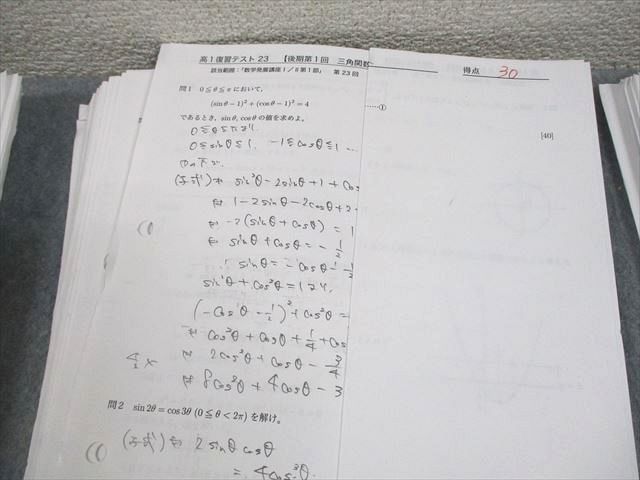 高1復習テスト23 【後期第1回 三角関数
該当範囲:「数学発展講座Ⅰ/Ⅱ第1部」 第23回
得点 30
問1 0≦θ≦πにおいて,
(sinθ−1)²+(cosθ−1)²=4 ……①
であるとき, sinθ, cosθの値を求めよ。
[40]
0≦θ≦πより.
0≦sinθ≦1, −1≦cosθ≦1 …
の下で.
(与式) ⇔ sin²θ−2sinθ+1+cos
⇔ 1−2sinθ−2cosθ+2
⇔ −2(sinθ+cosθ)=1
⇔ sinθ+cosθ=−1/2
∴ sinθ=−cosθ−1/2
sin²θ+cos²θ=1より.
(−cosθ−1/2)²+cos²θ=
⇔ cos²θ+cosθ+1/4+cos
⇔ 2cos²θ+cosθ−3/4
⇔ 8cos²θ+4cosθ−3
問2 sin2θ=cos3θ (0≦θ<2π) を解け。
(与式) ⇔ 2sinθcosθ
=4cos³θ